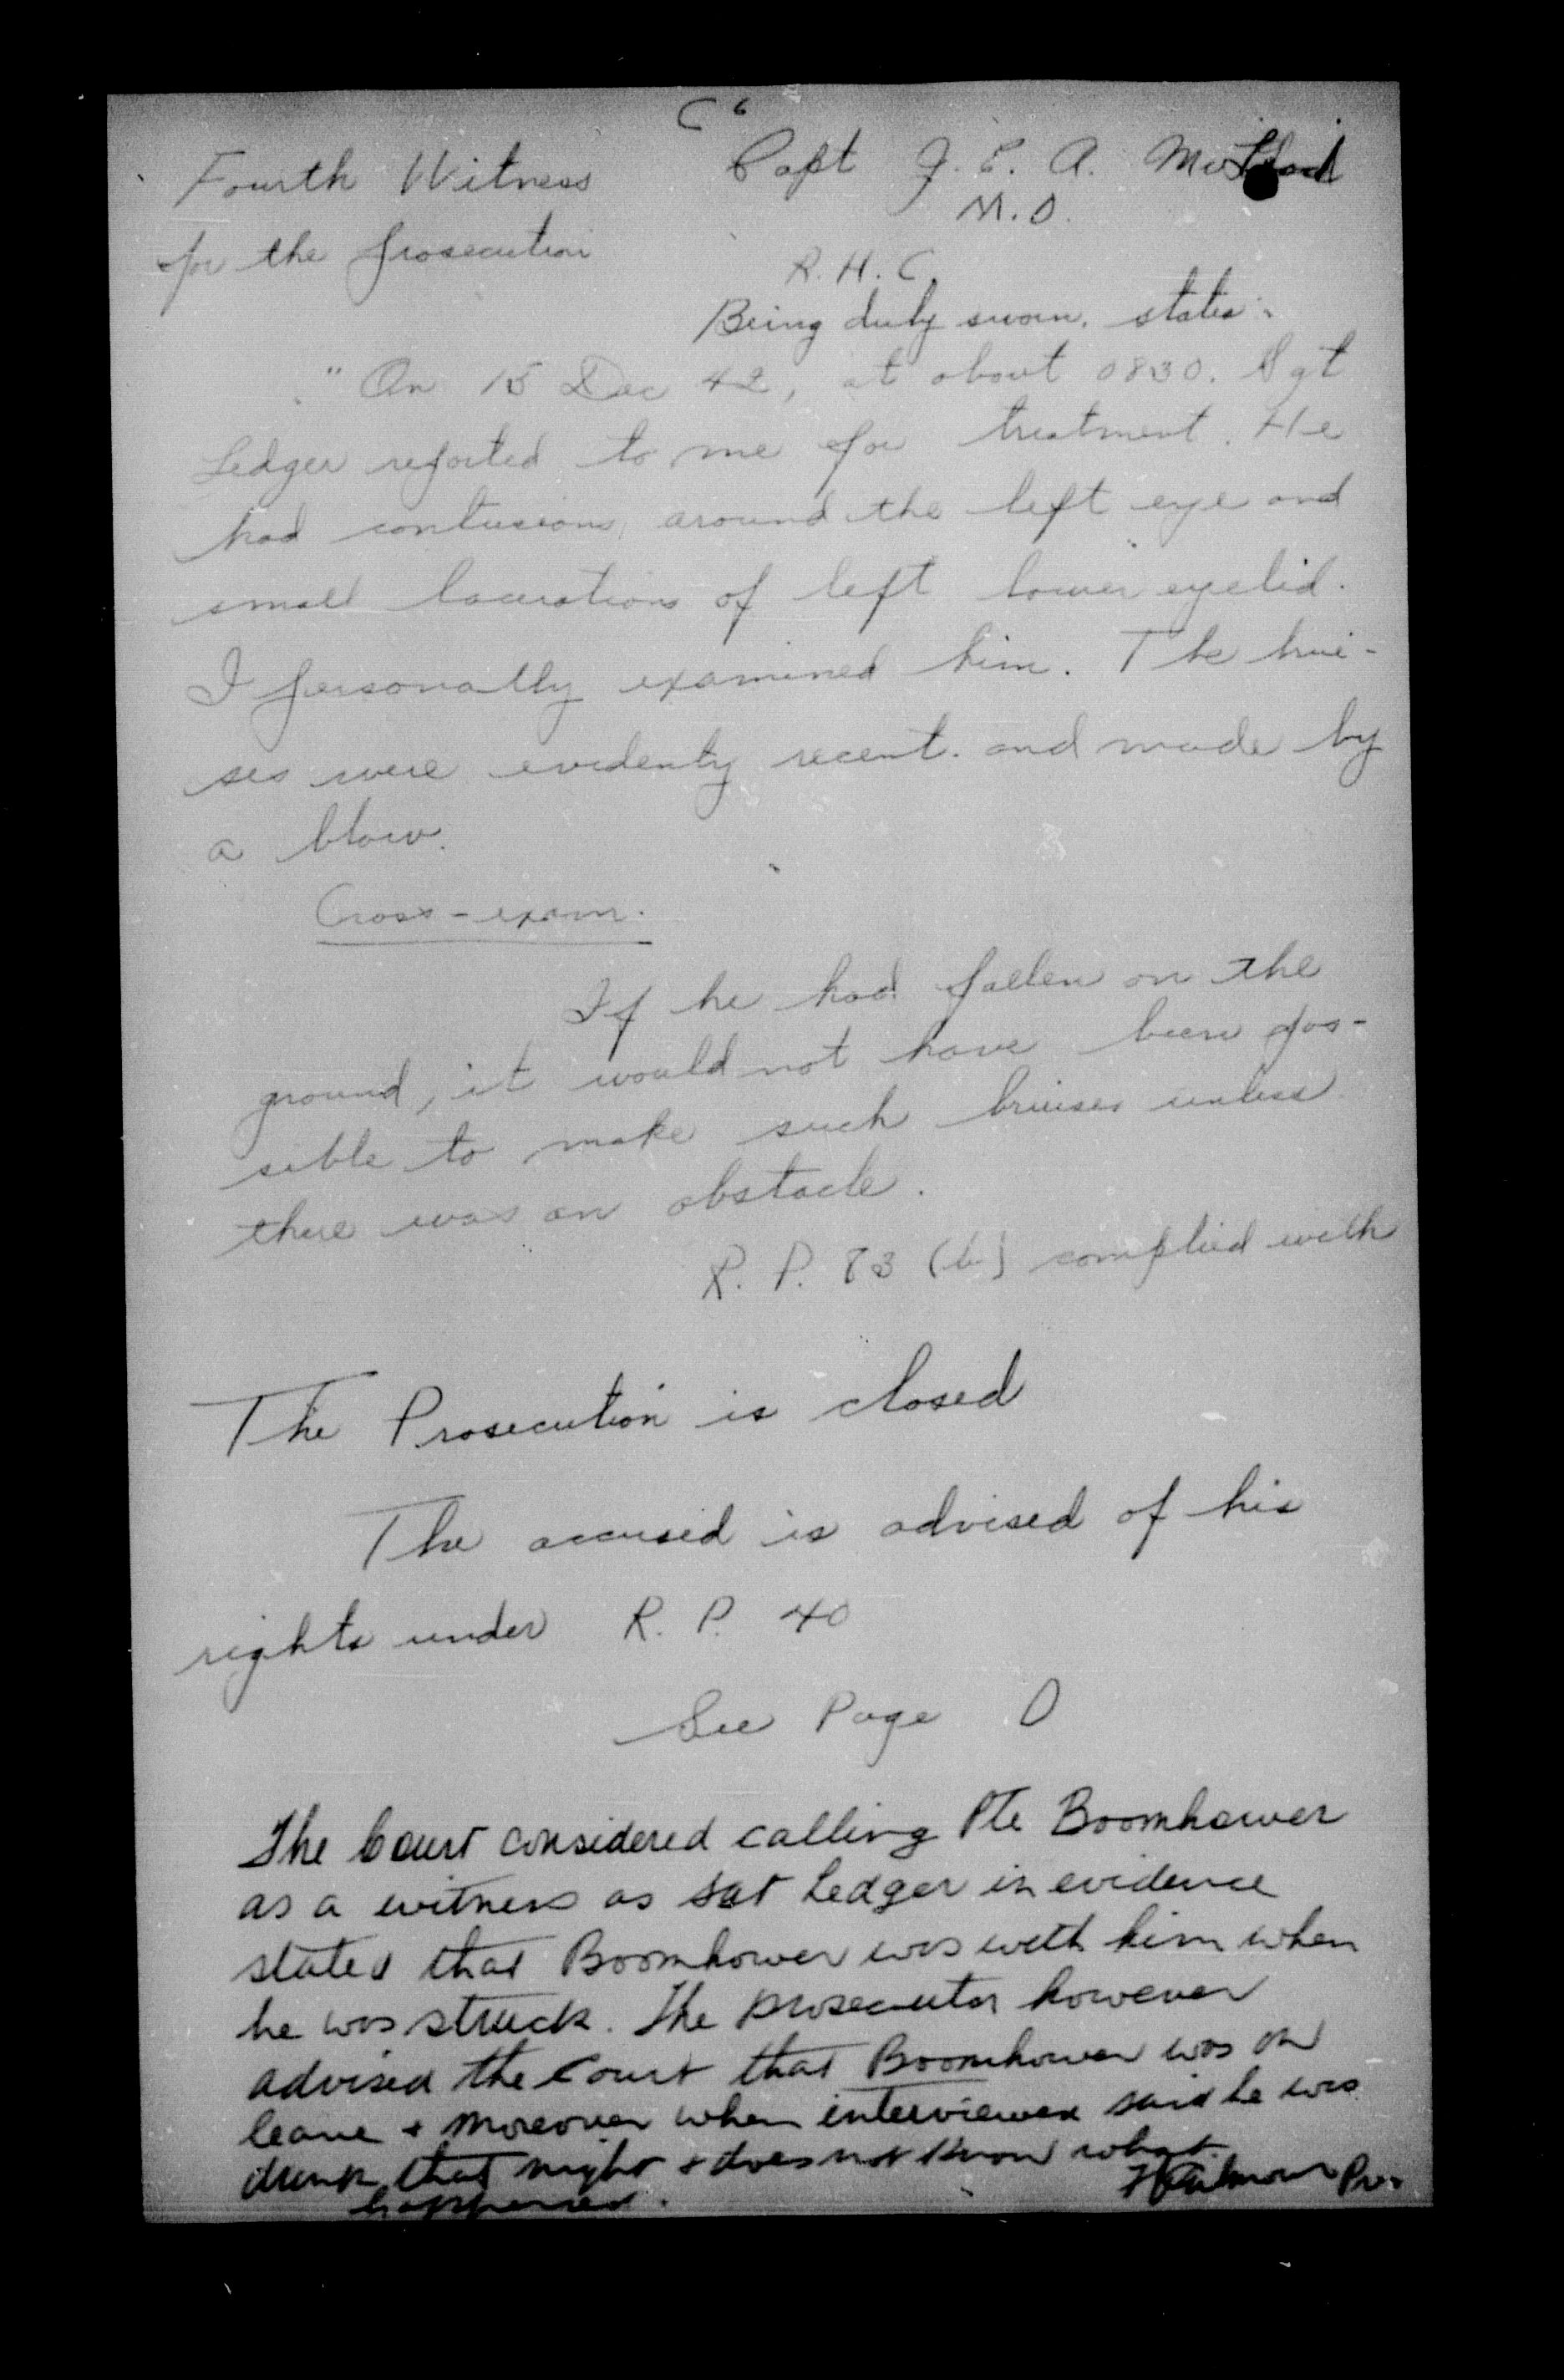 C 6
Fourth Witness Capt J. E. A.
M.O.
for the prosecution
R.H.C.
Being duly sworn, states:
"On 15 Dec 42, at about 0830. Sgt
Ledger reported to me for treatment. He
had contusions around the left eye and
small lacerations of left lower eyelid.
I personally examined him. The brui-
ses were evidenty recent. and made by
a blow.
Cross-exam.
If he had fallen on the
ground, it would not have been pos-
sible to make such bruises unless
there was an obstacle.
R. P. 83 (b) complied with
The Prosecution is closed
The accused is advised of his
rights under R. P. 40
See Page D
The Court considered calling Pte Boomhower
as a witness as Sgt Ledger in evidence
stated that Boomhower was with him when
he was struck. The prosecutor however
advised the Court that Boomhower was on
leave + moreover when interviewed said he was
drunk that night + does not know what
happened. Pres